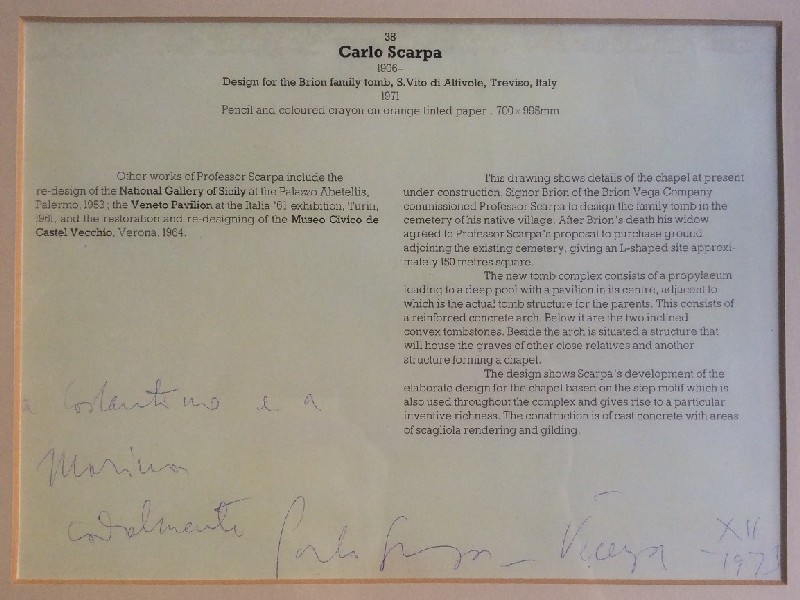 38
Carlo Scarpa
1906–
Design for the Brion family tomb, S.Vito di Altivole, Treviso, Italy
1971
Pencil and coloured crayon on orange tinted paper . 700×998mm
Other works of Professor Scarpa include the
re-design of the National Gallery of Sicily at the Palazzo Abetellis,
Palermo, 1953; the Veneto Pavilion at the Italia '61 exhibition, Turin,
1961, and the restoration and re-designing of the Museo Civico de
Castel Vecchio, Verona, 1964.
This drawing shows details of the chapel at present
under construction. Signor Brion of the Brion Vega Company
commissioned Professor Scarpa to design the family tomb in the
cemetery of his native village. After Brion's death his widow
agreed to Professor Scarpa's proposal to purchase ground
adjoining the existing cemetery, giving an L-shaped site approxi-
mately 150 metres square.
The new tomb complex consists of a propylaeum
leading to a deep pool with a pavilion in its centre, adjacent to
which is the actual tomb structure for the parents. This consists of
a reinforced concrete arch. Below it are the two inclined
convex tombstones. Beside the arch is situated a structure that
will house the graves of other close relatives and another
structure forming a chapel.
The design shows Scarpa's development of the
elaborate design for the chapel based on the step motif which is
also used throughout the complex and gives rise to a particular
inventive richness. The construction is of cast concrete with areas
of scagliola rendering and gilding.
a Costantino e a
Marina
cordialmente Carlo Scarpa – Vicenza XII